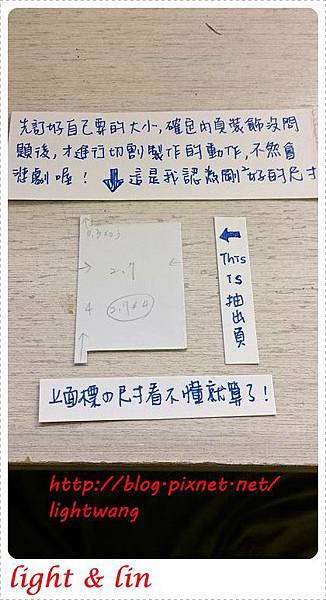 先訂好自己要的大小,確色內頁裝飾沒問
題後,才進行切割製作的動作,不然會
悲劇喔! ⇩ 這是我認為剛好的尺寸
0.3×0.3
2.7
4
2.7×4
← This is 抽出頁
上面標の尺寸看不懂就算了!
http://blog.pixnet.net/
lightwang
light & lin